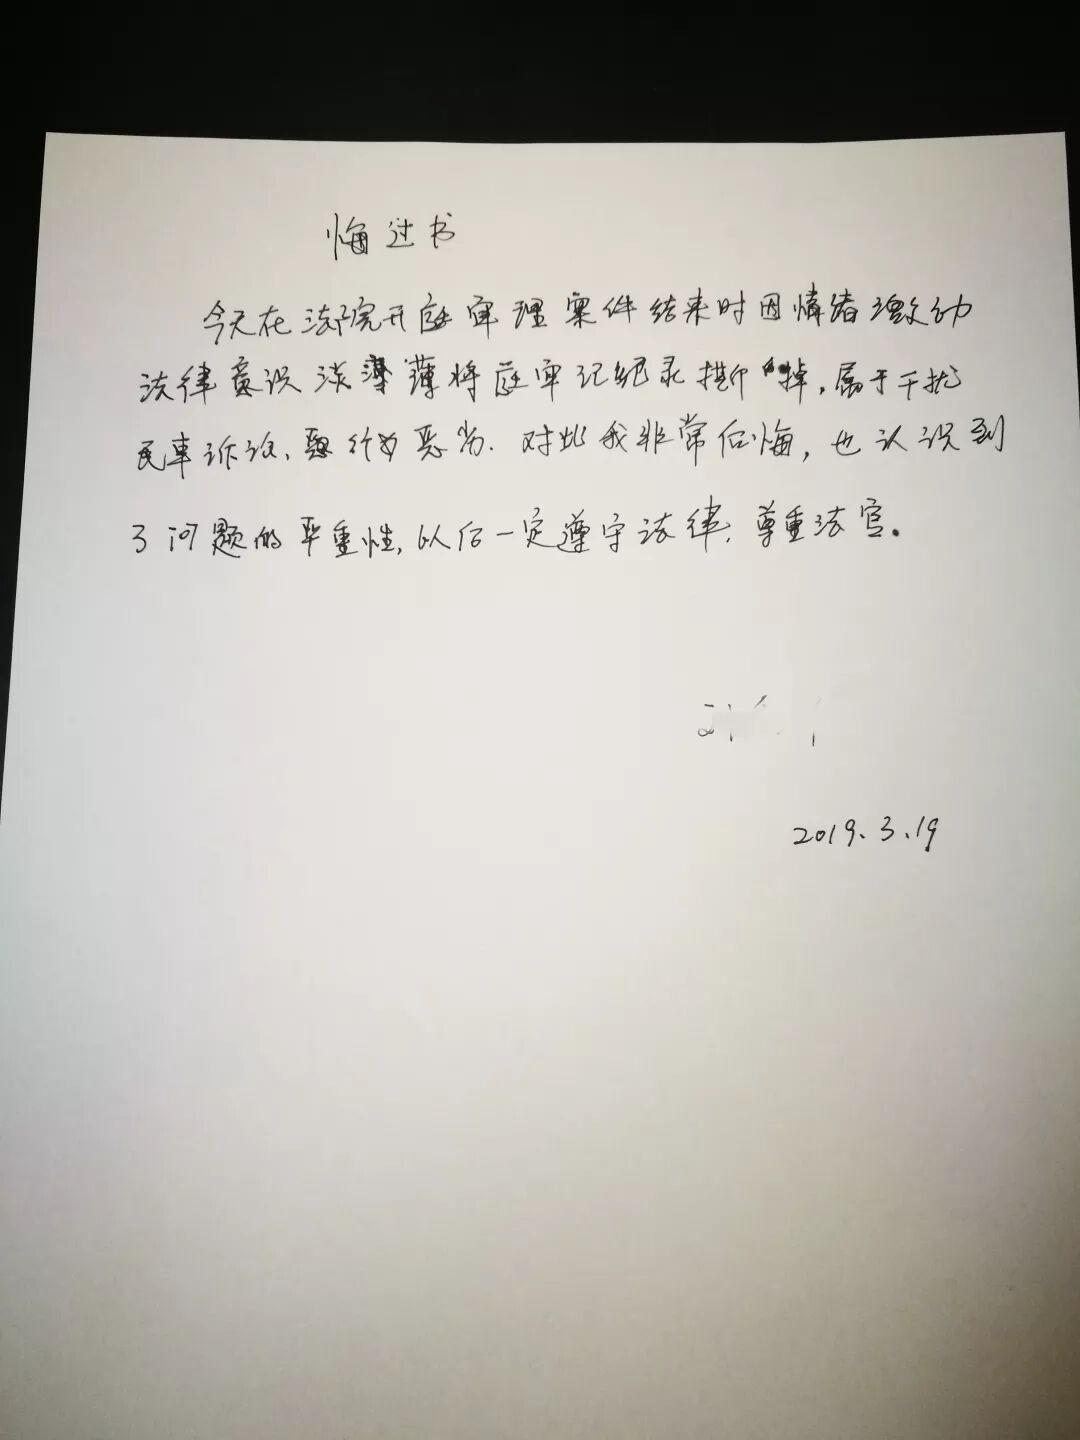 悔过书
今天在法院开庭审理案件结束时因情绪激动
法律意识淡薄将庭审记纪录撕掉,属于干扰
民事诉讼、行为恶劣.对此我非常后悔,也认识到
了问题的严重性,以后一定遵守法律、尊重法官。
2019.3.19